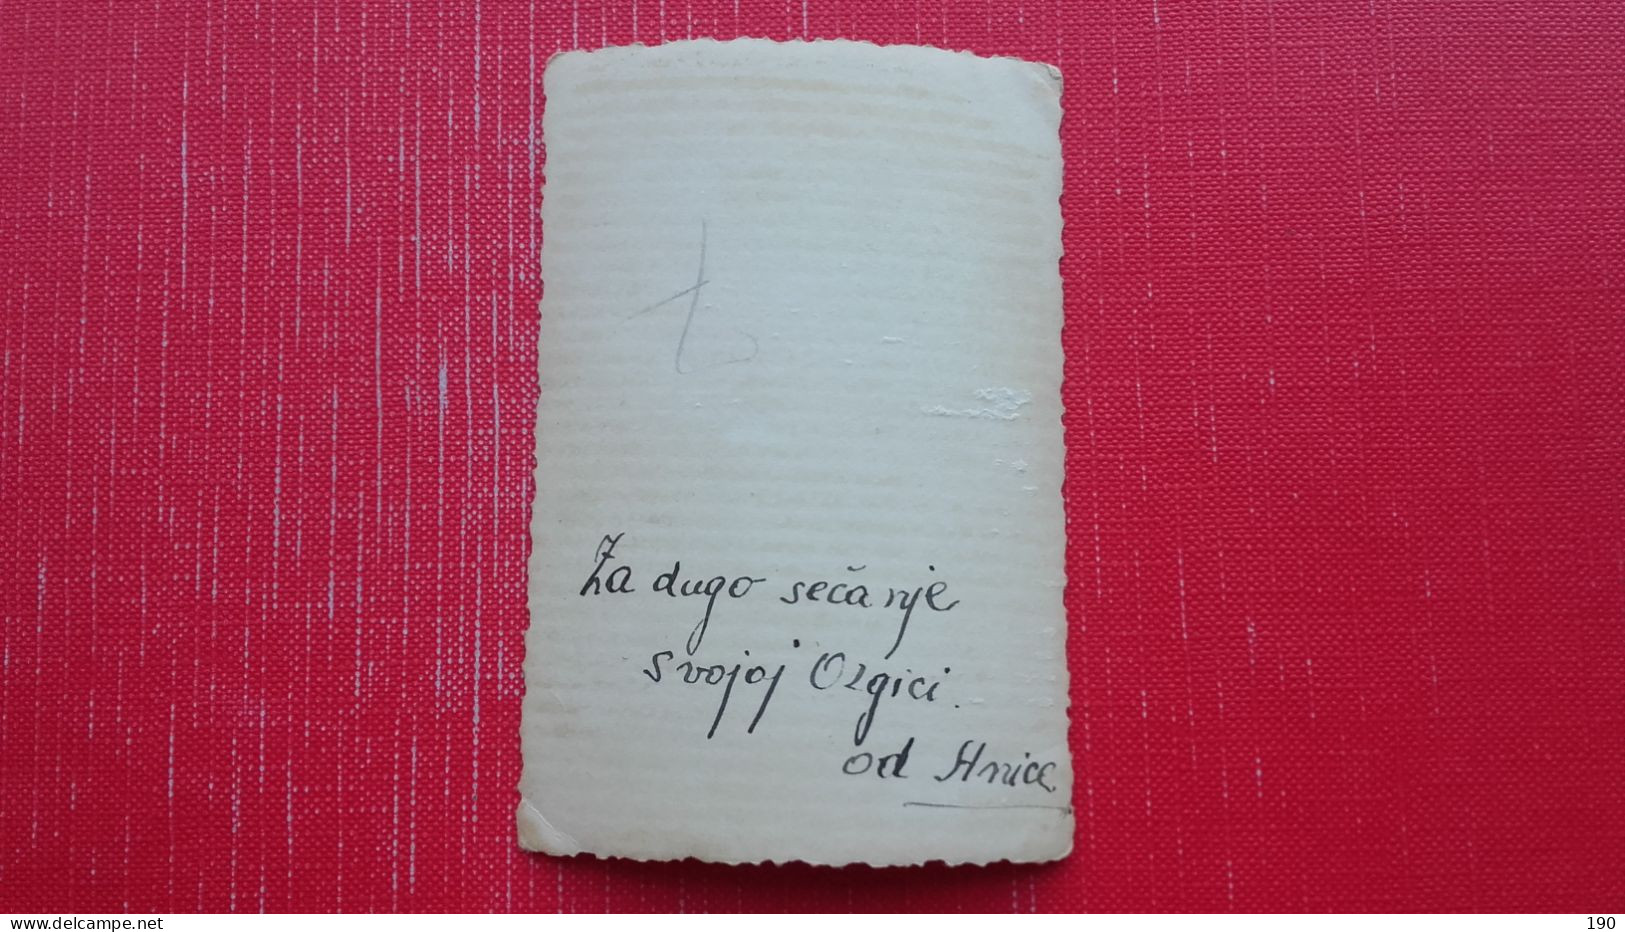 Za dugo sečanje
svojoj Olgici.
od Anice
delcampe.net
190